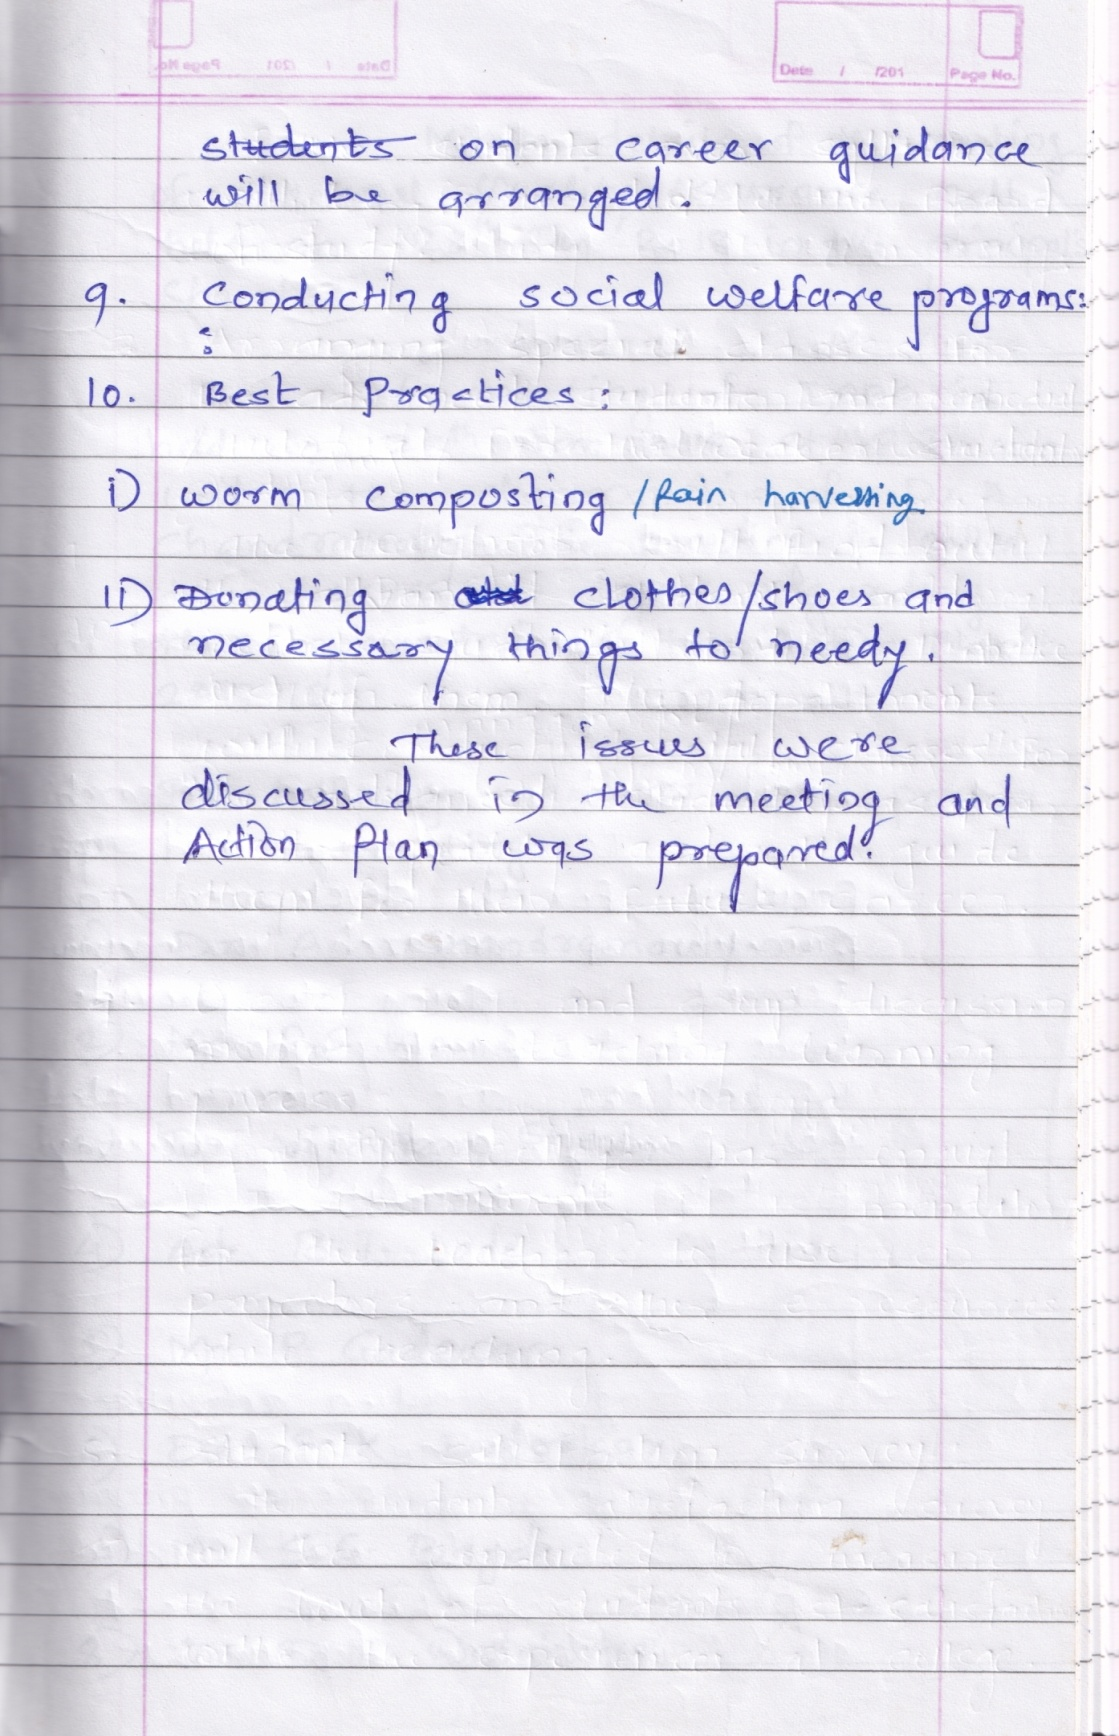 Date / /201 Page No.
students on career guidance
will be arranged.
9. Conducting social welfare programs:
:
10. Best Practices:
i) worm composting / Rain harvesting.
ii) Donating clothes/shoes and
necessary things to needy.
These issues were
discussed in the meeting and
Action Plan was prepared.